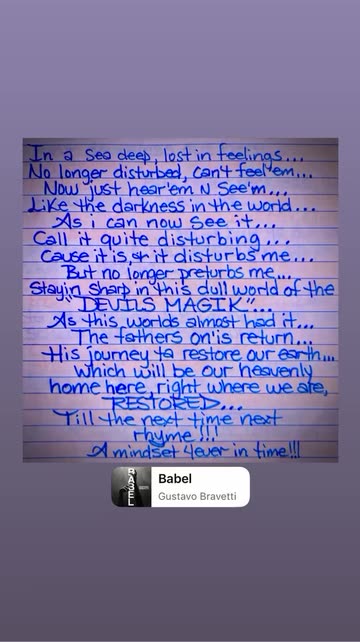 In a sea deep, lost in feelings...
No longer disturbed, can't feel'em...
Now just hear'em N See'm...
Like the darkness in the world...
As i can now see it...
Call it quite disturbing...
Cause it is, it disturbs me...
But no longer preturbs me...
Stayin sharp in this dull world of the
"DEVILS MAGIK"...
As this worlds almost had it...
The fathers on'is return...
His journey ta restore our earth...
which will be our heavenly
home here, right where we are,
RESTORED...
Till the next time next
rhyme!!!
A mindset 4ever in time!!!
BABEL
Babel
Gustavo Bravetti